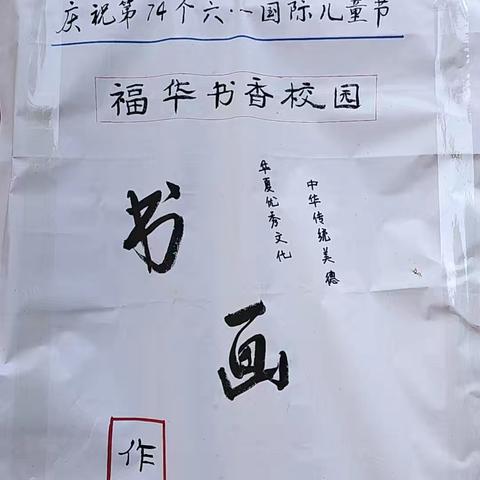 庆祝第74个六·一国际儿童节
福华书香校园
中华传统美德
华夏优秀文化
书
画
作